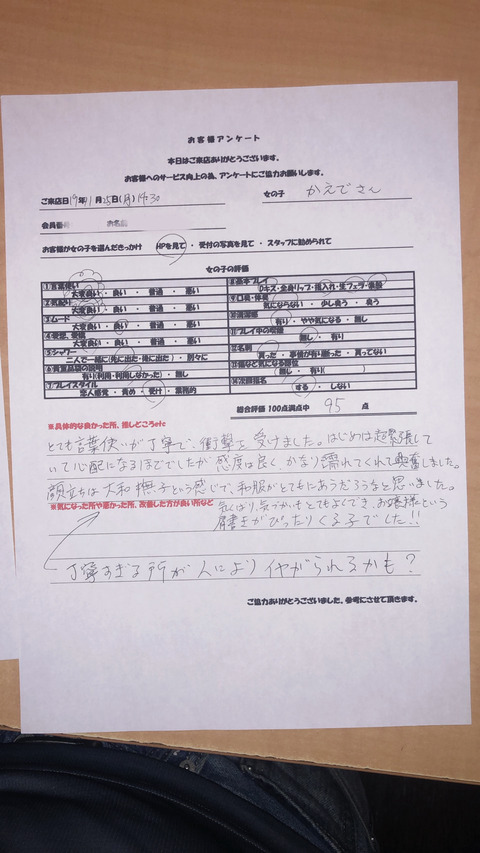 お客様アンケート
本日はご来店ありがとうございます。
お客様へのサービス向上の為、アンケートにご協力お願いします。
ご来店日 19年11月25日(月)14:30 女の子 かえでさん
会員番 お名
お客様が女の子を選んだきっかけ HPを見て ・ 受付の写真を見て ・ スタッフに勧められて
女の子の評価
①言葉使い
大変良い ・ 良い ・ 普通 ・ 悪い
②気配り
大変良い ・ 良い ・ 普通 ・ 悪い
③ムード
大変良い ・ 良い ・ 普通 ・ 悪い
④愛想、愛嬌
大変良い ・ 良い ・ 普通 ・ 悪い
⑤シャワー
二人で一緒に(先に出た・後に出た) ・ 別々に
⑥貴重品袋の説明
有り(利用・利用しなかった) ・ 無し
⑦プレイスタイル
恋人感覚 ・ 責め ・ 受け ・ 業務的
⑧基本プレイ
Dキス・全身リップ・指入れ・生フェラ・素股
⑨口臭・体臭
気にならない ・ 少し臭う ・ 臭う
⑩清潔感
有り ・ やや気になる ・ 無し
⑪プレイ中の喫煙
有り ・ 無し
⑫名刺
貰った ・ 事情が有り断った ・ 貰ってない
無し ・ 有り( )
⑭次回指名
する ・ しない
総合評価 100点満点中 95 点
※具体的な良かった所、推しどころetc
とても言葉使いが丁寧で、衝撃を受けました。はじめは超緊張して
いて心配になるほどでしたが 感度は良く、かなり濡れてくれて興奮しました。
顔立ちは大和撫子という感じで、和服がとてもにあうだろうなと思いました。
※気になった所や悪かった所、改善した方が良い所など
気くばり、気づかいもとてもよくでき、お嬢様という
肩書きがぴったりくる子でした!!
丁寧すぎる所が人によりイヤがられるかも?
ご協力ありがとうございました。参考にさせて頂きます。